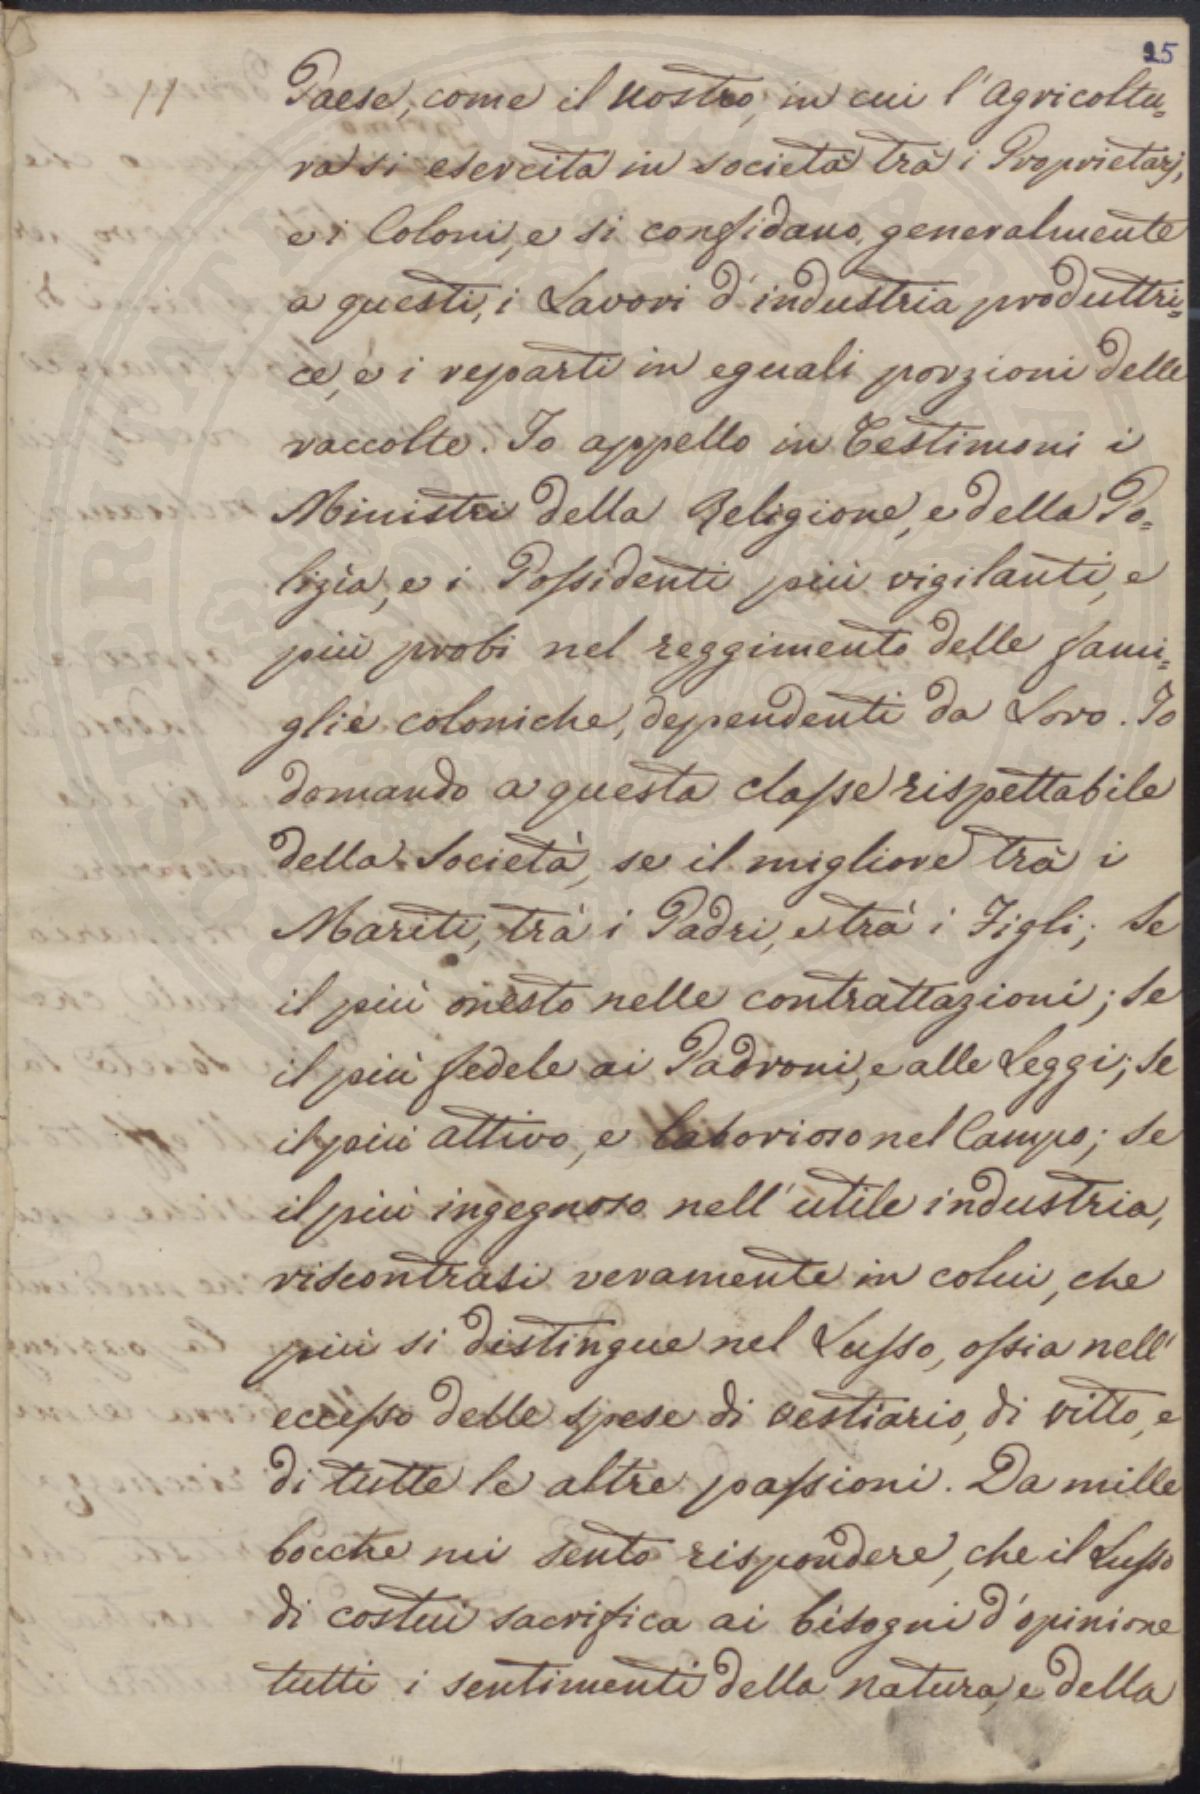 25
11
Paese, come il nostro, in cui l'Agricoltu=
ra si esercita in società trà i Proprietarj,
e i Coloni, e si confidano, generalmente
a questi, i Lavori d'industria produttri=
ce, e i reparti in eguali porzioni delle
raccolte. Io appello in Testimoni i
Ministri della Religione, e della Po=
lizia, e i Possidenti più vigilanti, e
più probi nel reggimento delle fami=
glie coloniche, dependenti da Loro. Io
domando a questa classe rispettabile
della Società, se il migliore trà i
Mariti, trà i Padri, e trà i Figli; Se
il più onesto nelle contrattazioni; Se
il più fedele ai Padroni, e alle Leggi; Se
il più attivo, e laborioso nel Campo; Se
il più ingegnoso nell'utile industria,
riscontrasi veramente in colui, che
più si distingue nel Lusso, ossia nell'
eccesso delle spese di vestiario, di vitto, e
di tutte le altre passioni. Da mille
bocche mi sento rispondere, che il Lusso
di costui sacrifica ai bisogni d'opinione
tutti i sentimenti della natura, e della